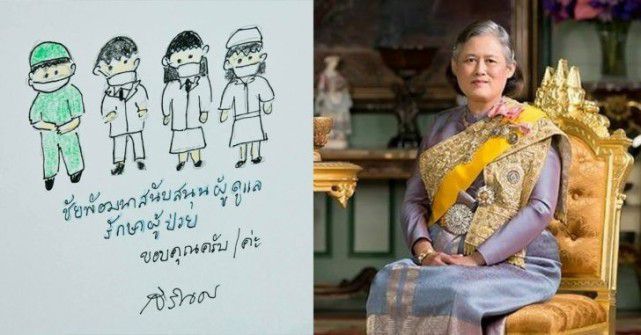 ชัยพัฒนาสนับสนุนผู้ดูแล
รักษาผู้ป่วย
ขอบคุณครับ/ค่ะ
สิรินธร